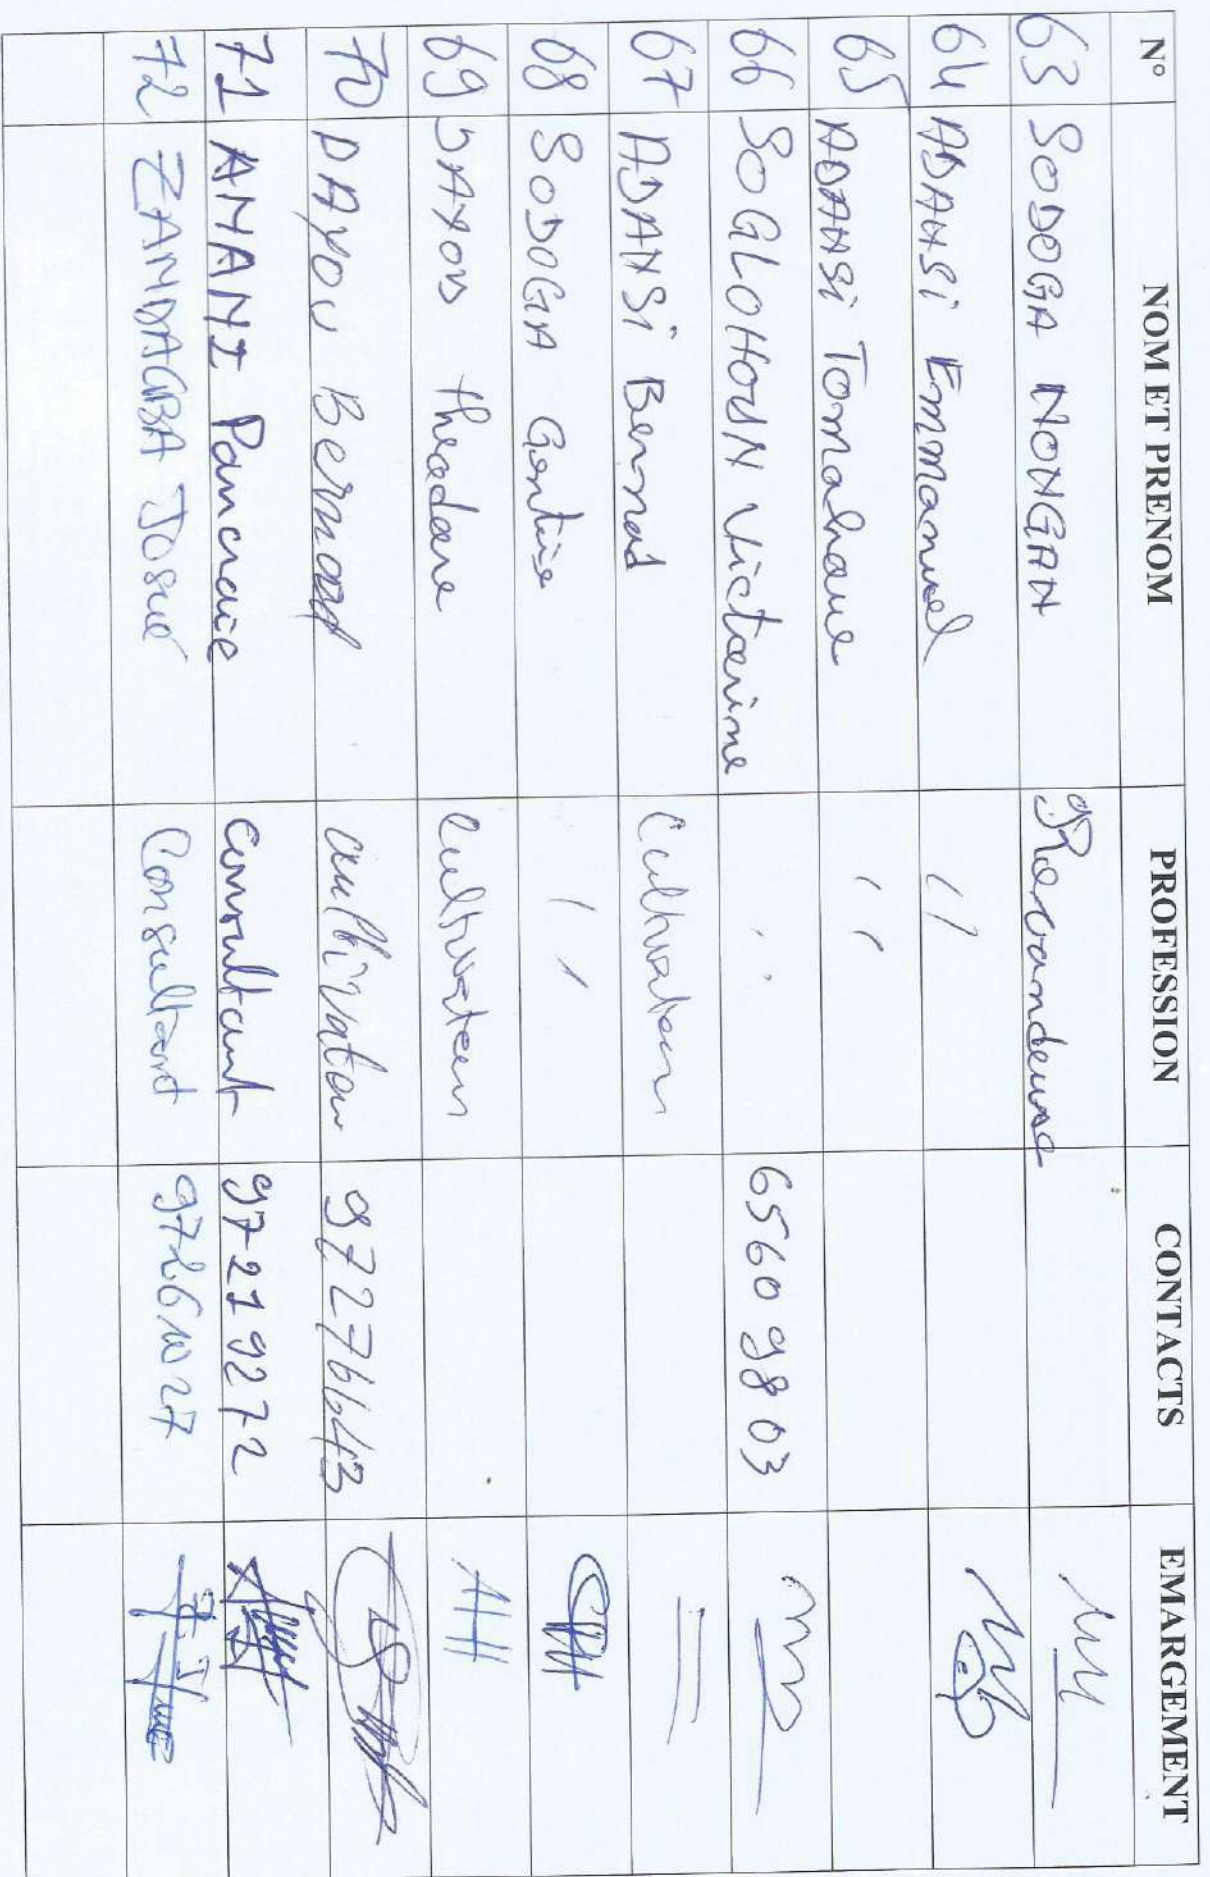 N° NOM ET PRENOM PROFESSION CONTACTS EMARGEMENT
63 SODOGA NONGAN Revendeuse
64 ADANSi Emmanuel 〃
65 ADANSi Tomahaue 〃
66 SOGLOHOUN Victorine 〃 65609803
67 ADANSi Bernad Cultivateur
68 SODOGA Gentise 〃
69 DAYOU theodore Cultivateur
70 DAYOU Bernad cultivateur 97276643
71 AMANI Pancraie consultant 97219272
72 ZANDAGBA Josué Consultant 97261027